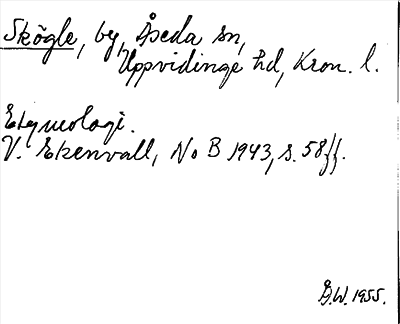 Skögle, by, Åseda sn,
Uppvidinge hd, Kron. l.
Etymologi.
V. Ekenvall, No B 1943, s. 58ff.
Å.W. 1955.